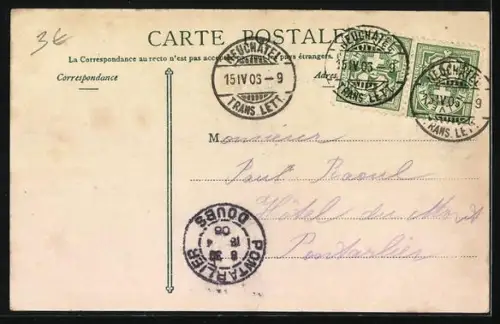 3€
CARTE POSTALE
La Correspondance au recto n'est pas acce pays étrangers.
Correspondance
Adre
NEUCHATEL
15 IV 06 - 9
TRANS. LETT.
NEUCHATEL
TRANS. LETT.
NEUCHATEL
15 IV 06 - 9
TRANS. LETT.
Monsieur
Paul Raoul
Hôtel du
Pontarlier
PONTARLIER
8 30
4
06
DOUBS